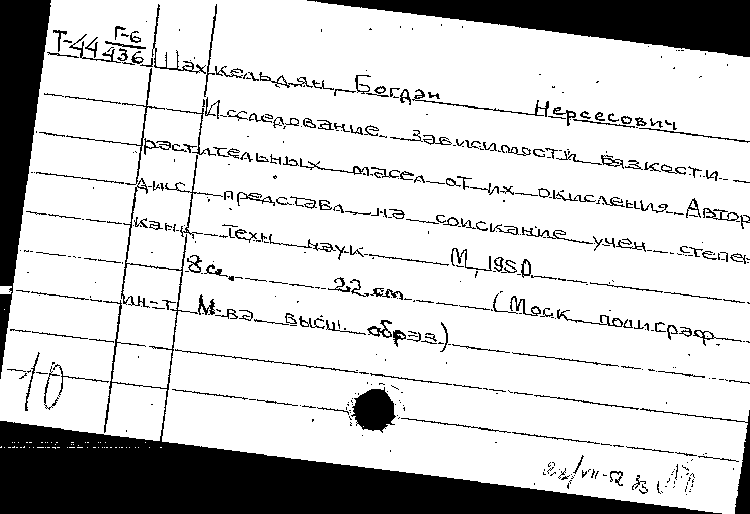 Т-44 Г-6/436 Шахкельдян, Богдан Нерсесович
Исследование зависимости вязкости
растительных масел от их окисления Автор
дисс, представл, на соискание учен степен
канд техн наук. М, 1950
8 с. 22 см (Моск полиграф.
ин-т М-ва высш образ)
10